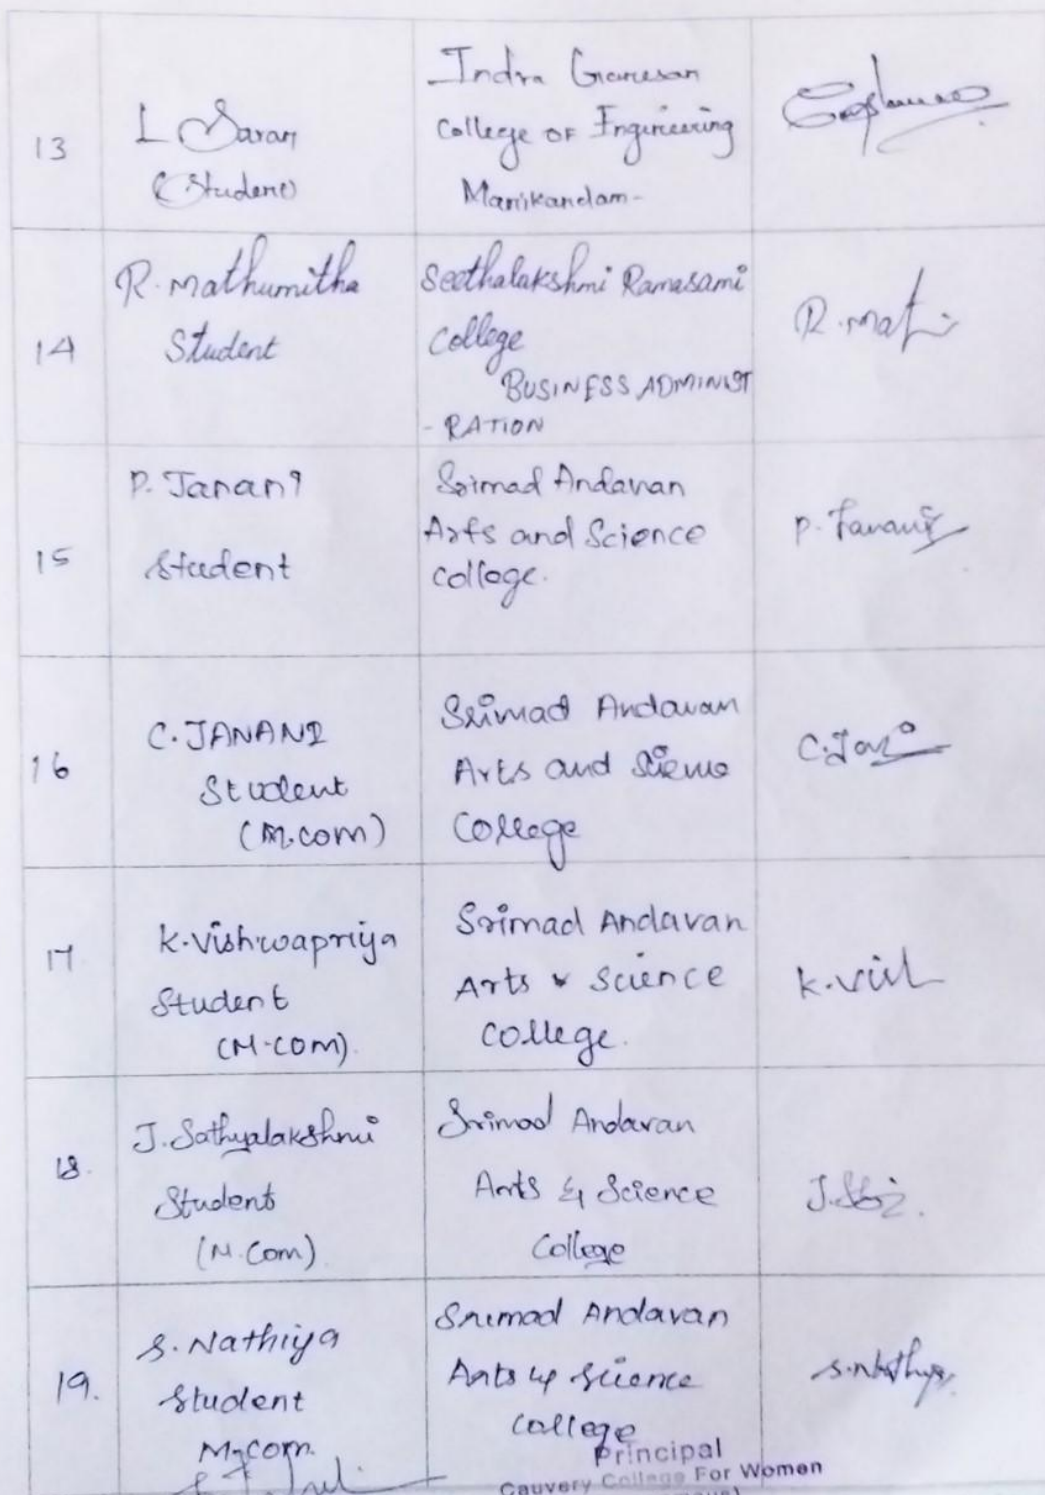 13
L Saran
(Student)
Indra Ganesan
College OF Engineering
Manikandam-
14
R. Mathumitha
Student
Seethalakshmi Ramasami
College
BUSINESS ADMINIST
- RATION
R. mat
15
P. Janani
Student
Srimad Andavan
Arts and Science
college.
P. Janani
16
C. JANANI
Student
(M.com)
Srimad Andavan
Arts and Science
College
C. Jan
17
K. Vishwapriya
Student
(M.com).
Srimad Andavan
Arts & Science
College.
K. Vish
18.
J. Sathyalakshmi
Student
(M.Com)
Srimad Andavan
Arts & Science
College
19.
S. Nathiya
Student
M.com.
Srimad Andavan
Arts & Science
College
S. Nathiya
Principal
Cauvery College For Women